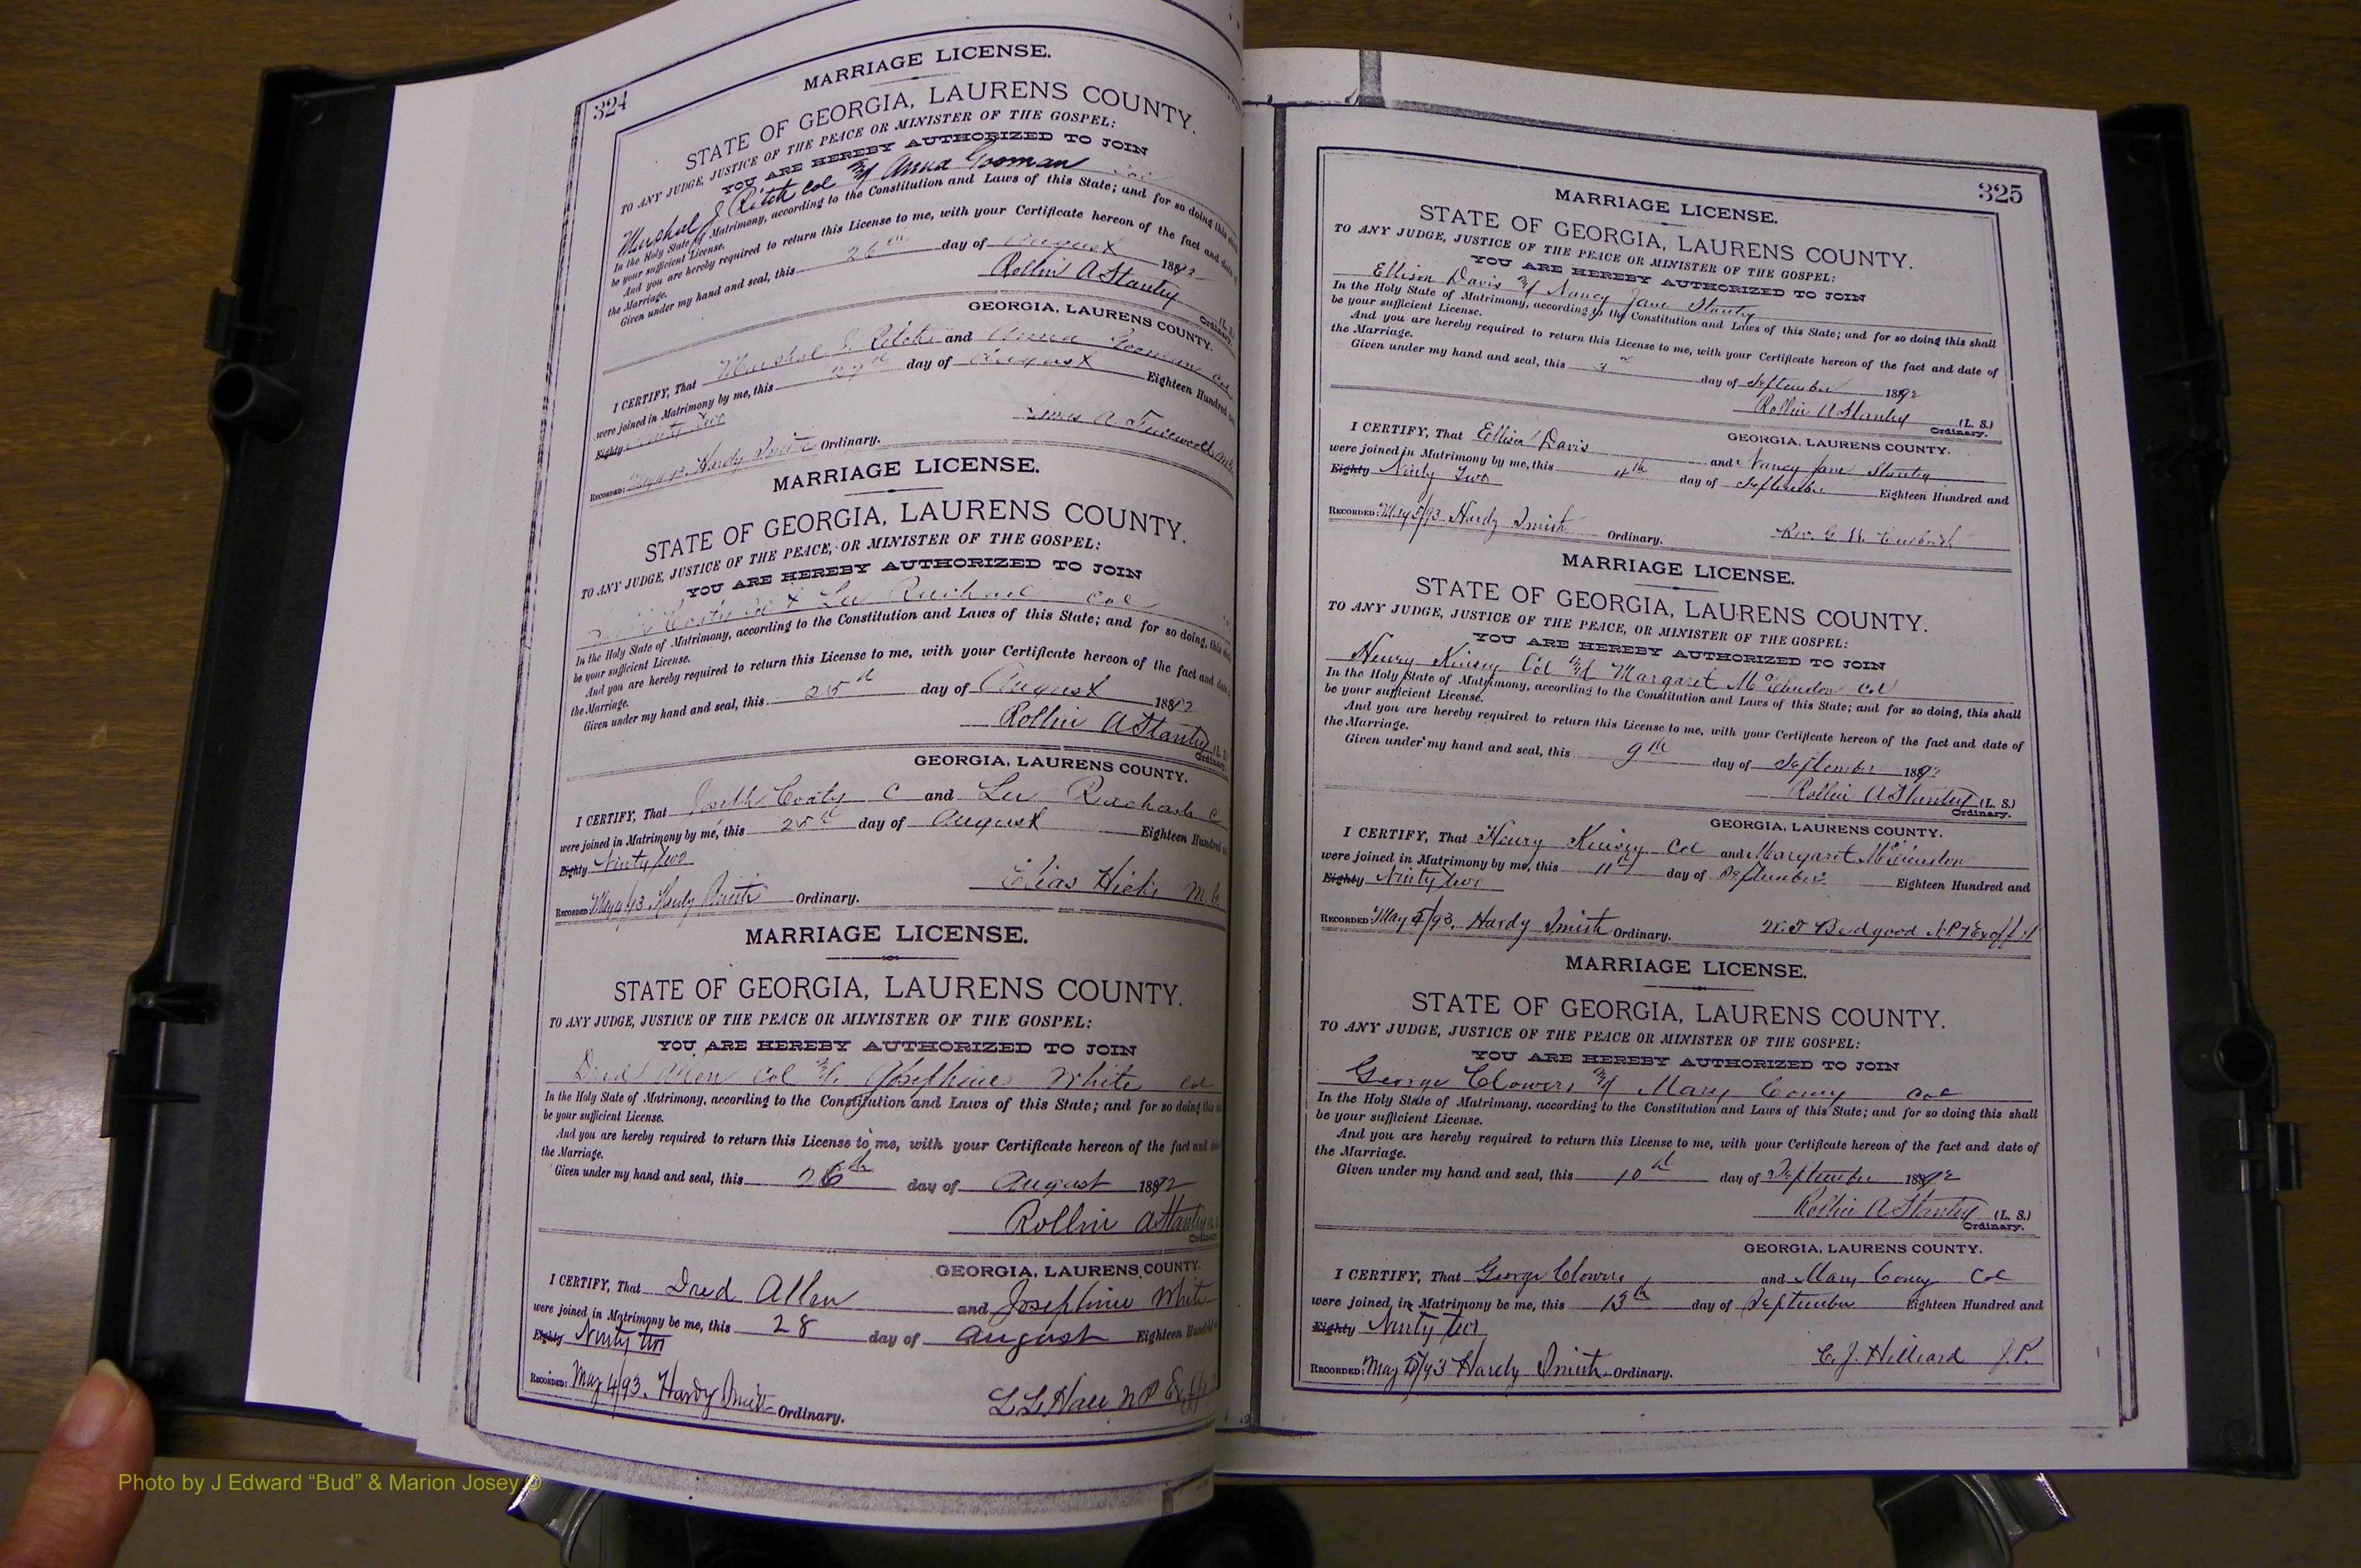 324
MARRIAGE LICENSE.
STATE OF GEORGIA, LAURENS COUNTY.
TO ANY JUDGE, JUSTICE OF THE PEACE OR MINISTER OF THE GOSPEL:
YOU ARE HEREBY AUTHORIZED TO JOIN
Marshal J Ritch Col & Anna Gorman
In the Holy State of Matrimony, according to the Constitution and Laws of this State; and for so doing this
be your sufficient License.
And you are hereby required to return this License to me, with your Certificate hereon of the fact and
the Marriage.
Given under my hand and seal, this 26th day of August 1892
Rollin A Stanley
Ordinary
GEORGIA, LAURENS COUNTY.
I CERTIFY, That Marshal J. Ritch and Anna Gorman Col
were joined in Matrimony by me, this 27th day of August Eighteen Hundred
Eighty Ninty two
RECORDED: Hardy Smith Ordinary.
MARRIAGE LICENSE.
STATE OF GEORGIA, LAURENS COUNTY.
TO ANY JUDGE, JUSTICE OF THE PEACE, OR MINISTER OF THE GOSPEL:
YOU ARE HEREBY AUTHORIZED TO JOIN
Coaty Col & Lu Col
In the Holy State of Matrimony, according to the Constitution and Laws of this State; and for so doing, this
be your sufficient License.
And you are hereby required to return this License to me, with your Certificate hereon of the fact and
the Marriage.
Given under my hand and seal, this 25th day of August 1892
Rollin A Stanley (L.
Ordinary.
GEORGIA, LAURENS COUNTY.
I CERTIFY, That Joseph Coaty C and Lu C
were joined in Matrimony by me, this 25th day of August Eighteen Hundred
Eighty Ninty two
Elias Hicks M.G.
RECORDED May 4/93 Hardy Smith Ordinary.
MARRIAGE LICENSE.
STATE OF GEORGIA, LAURENS COUNTY.
TO ANY JUDGE, JUSTICE OF THE PEACE OR MINISTER OF THE GOSPEL:
YOU ARE HEREBY AUTHORIZED TO JOIN
Dred Allen Col & Josephine White Col
In the Holy State of Matrimony, according to the Constitution and Laws of this State; and for so doing this
be your sufficient License.
And you are hereby required to return this License to me, with your Certificate hereon of the fact and
the Marriage.
Given under my hand and seal, this 26th day of August 1892
Rollin A Stanley
Ordinary
GEORGIA, LAURENS COUNTY.
I CERTIFY, That Dred Allen and Josephine White
were joined in Matrimony be me, this 28 day of August Eighteen Hundred
Eighty Ninty two
RECORDED: May 4/93. Hardy Smith Ordinary.
L L Hall N P Ex
325
MARRIAGE LICENSE.
STATE OF GEORGIA, LAURENS COUNTY.
TO ANY JUDGE, JUSTICE OF THE PEACE OR MINISTER OF THE GOSPEL:
YOU ARE HEREBY AUTHORIZED TO JOIN
Ellison Davis & Nancy Jane Stanley
In the Holy State of Matrimony, according to the Constitution and Laws of this State; and for so doing this shall
be your sufficient License.
And you are hereby required to return this License to me, with your Certificate hereon of the fact and date of
the Marriage.
Given under my hand and seal, this day of September 1892
Rollin A Stanley (L. S.)
Ordinary.
GEORGIA, LAURENS COUNTY.
I CERTIFY, That Ellison Davis and Nancy Jane Stanley
were joined in Matrimony by me, this 4th day of September Eighteen Hundred and
Eighty Ninty Two
Rev. G
RECORDED: May 5/93 Hardy Smith Ordinary.
MARRIAGE LICENSE.
STATE OF GEORGIA, LAURENS COUNTY.
TO ANY JUDGE, JUSTICE OF THE PEACE, OR MINISTER OF THE GOSPEL:
YOU ARE HEREBY AUTHORIZED TO JOIN
Henry Kinsey Col & Margaret McLendon Col
In the Holy State of Matrimony, according to the Constitution and Laws of this State; and for so doing, this shall
be your sufficient License.
And you are hereby required to return this License to me, with your Certificate hereon of the fact and date of
the Marriage.
Given under my hand and seal, this 9th day of September 1892
Rollin A Stanley (L. S.)
Ordinary.
GEORGIA, LAURENS COUNTY.
I CERTIFY, That Henry Kinsey Col and Margaret McLendon
were joined in Matrimony by me, this 11th day of September Eighteen Hundred and
Eighty Ninty two
RECORDED: May 5/93. Hardy Smith Ordinary.
W. T Bedgood N.P. & Exoff
MARRIAGE LICENSE.
STATE OF GEORGIA, LAURENS COUNTY.
TO ANY JUDGE, JUSTICE OF THE PEACE OR MINISTER OF THE GOSPEL:
YOU ARE HEREBY AUTHORIZED TO JOIN
George Clowers & Mary Coney Col
In the Holy State of Matrimony, according to the Constitution and Laws of this State; and for so doing this shall
be your sufficient License.
And you are hereby required to return this License to me, with your Certificate hereon of the fact and date of
the Marriage.
Given under my hand and seal, this 10th day of September 1892
Rollin A Stanley (L. S.)
Ordinary.
GEORGIA, LAURENS COUNTY.
I CERTIFY, That George Clowers and Mary Coney Col
were joined, in Matrimony be me, this 13th day of September Eighteen Hundred and
Eighty Ninty two
C. J. Hilliard J.P.
RECORDED: May 5/93 Hardy Smith Ordinary.
Photo by J Edward “Bud” & Marion Josey ©